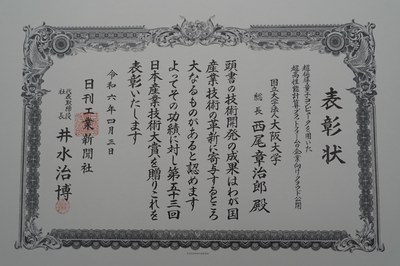 表彰状
超伝導量子コンピュータを用いた
超高性能計算プラットフォームの企業向けクラウド公開
国立大学法人 大阪大学
総長 西尾章治郎 殿
頭書の技術開発の成果はわが国
産業技術の革新に寄与するところ
大なるものがあると認めます
よってその功績に対し第五十三回
日本産業技術大賞を贈りこれを
表彰いたします
令和六年四月三日
日刊工業新聞社
代表取締役
社長 井水治博